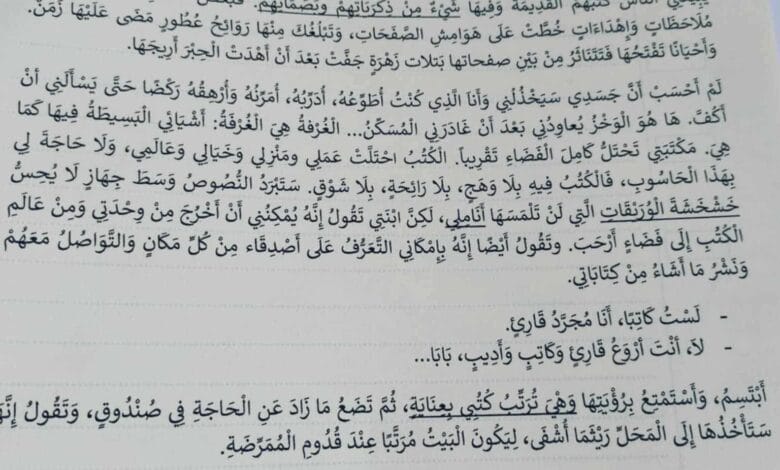 يبيعني الناس كتبهم القديمة وفيها شيء من ذكرياتهم وبصماتهم. فبعض
مُلَاحَظَاتٍ وَإِهْدَاءَاتٍ خُطَّتْ عَلَى هَوَامِشِ الصَّفَحَاتِ، وَتَبْلُغُكَ مِنْهَا رَوَائِحُ عُطُورٍ مَضَى عَلَيْهَا زَمَنٌ.
وَأَحْيَانًا تَفْتَحُهَا فَتَتَنَاثَرُ مِنْ بَيْنِ صفحاتها بَتلات زَهْرَةٍ جَفَّتْ بَعْدَ أَنْ أَهْدَتْ الْحِبْرَ أَرِيجَهَا.
لَمْ أَحْسَبْ أَنَّ جَسَدِي سَيَخْذُلُنِي وَأَناَ الَّذِي كُنْتُ أُطَوِّعُهُ، أُدَرِّبُهُ، أُمَرِّنُهُ وَأُرْهِقُهُ رَكْضًا حَتَّى يَسْأَلَنِي أنْ
أَكُفَّ. هَا هُوَ الْوَخْزُ يُعاوِدُنِي بَعْدَ أَنْ غَادَرَنِي الْمُسَكِّنُ... الْغُرْفَةُ هِيَ الْغُرْفَةُ: أَشْيَائِي الْبَسِيطَةُ فِيهَا كَمَا
هِيَ. مَكْتَبَتِي تَحْتَلُّ كَامِلَ الْفَضَاءِ تَقْرِيباً. الْكُتُبُ احْتَلَّتْ عَمَلِي ومَنْزِلِي وَخَيَالِي وَعَالَمِي، وَلَا حَاجَةَ لِي
بِهَذَا الْحَاسُوبِ، فَالْكُتُبُ فِيهِ بِلَا وَهَجٍ، بِلَا رَائِحَةٍ، بِلَا شَوْقٍ. سَتَبْرَدُ النُّصُوصُ وَسَطَ جِهَازٍ لَا يُحِسُّ
خَشْخَشَةَ الْوُرَيْقَاتِ الَّتِي لَنْ تَلْمَسَهَا أَنَامِلِي، لَكِنَّ ابْنَتِي تَقُولُ إِنَّهُ يُمْكِنُنِي أَنْ أَخْرُجَ مِنْ وِحْدَتِي وَمِنْ عَالَمِ
الْكُتُبِ إِلَى فَضَاءٍ أَرْحَبَ. وَتَقُولُ أَيْضًا إِنَّهُ بِإِمْكَانِي التَّعَرُّفُ عَلَى أَصْدِقَاء مِنْ كُلِّ مَكَانٍ وَالتَّوَاصُلُ مَعَهُمْ
وَنَشْرُ مَا أَشَاءُ مِنْ كِتَابَاتِي.
- لَسْتُ كَاتِبًا، أَنَا مُجَرَّدُ قَارِئٍ.
- لاَ، أَنْتَ أَرْوَعُ قَارِئٍ وَكَاتِبٍ وَأَدِيبٍ، بَابَا...
أَبْتَسِمُ، وَأَسْتَمْتِعُ بِرُؤْيَتِهَا وَهْيَ تُرَتِّبُ كُتُبِي بِعِنَايَةٍ، ثُمَّ تَضَعُ مَا زَادَ عَنِ الْحَاجَةِ فِي صُنْدُوقٍ، وَتَقُولُ إِنَّهَا
سَتَأْخُذُهَا إِلَى الْمَحَلِّ رَيْثَمَا أُشْفَى، لِيَكُونَ الْبَيْتُ مُرَتَّبًا عِنْدَ قُدُومِ الْمُمَرِّضَةِ.